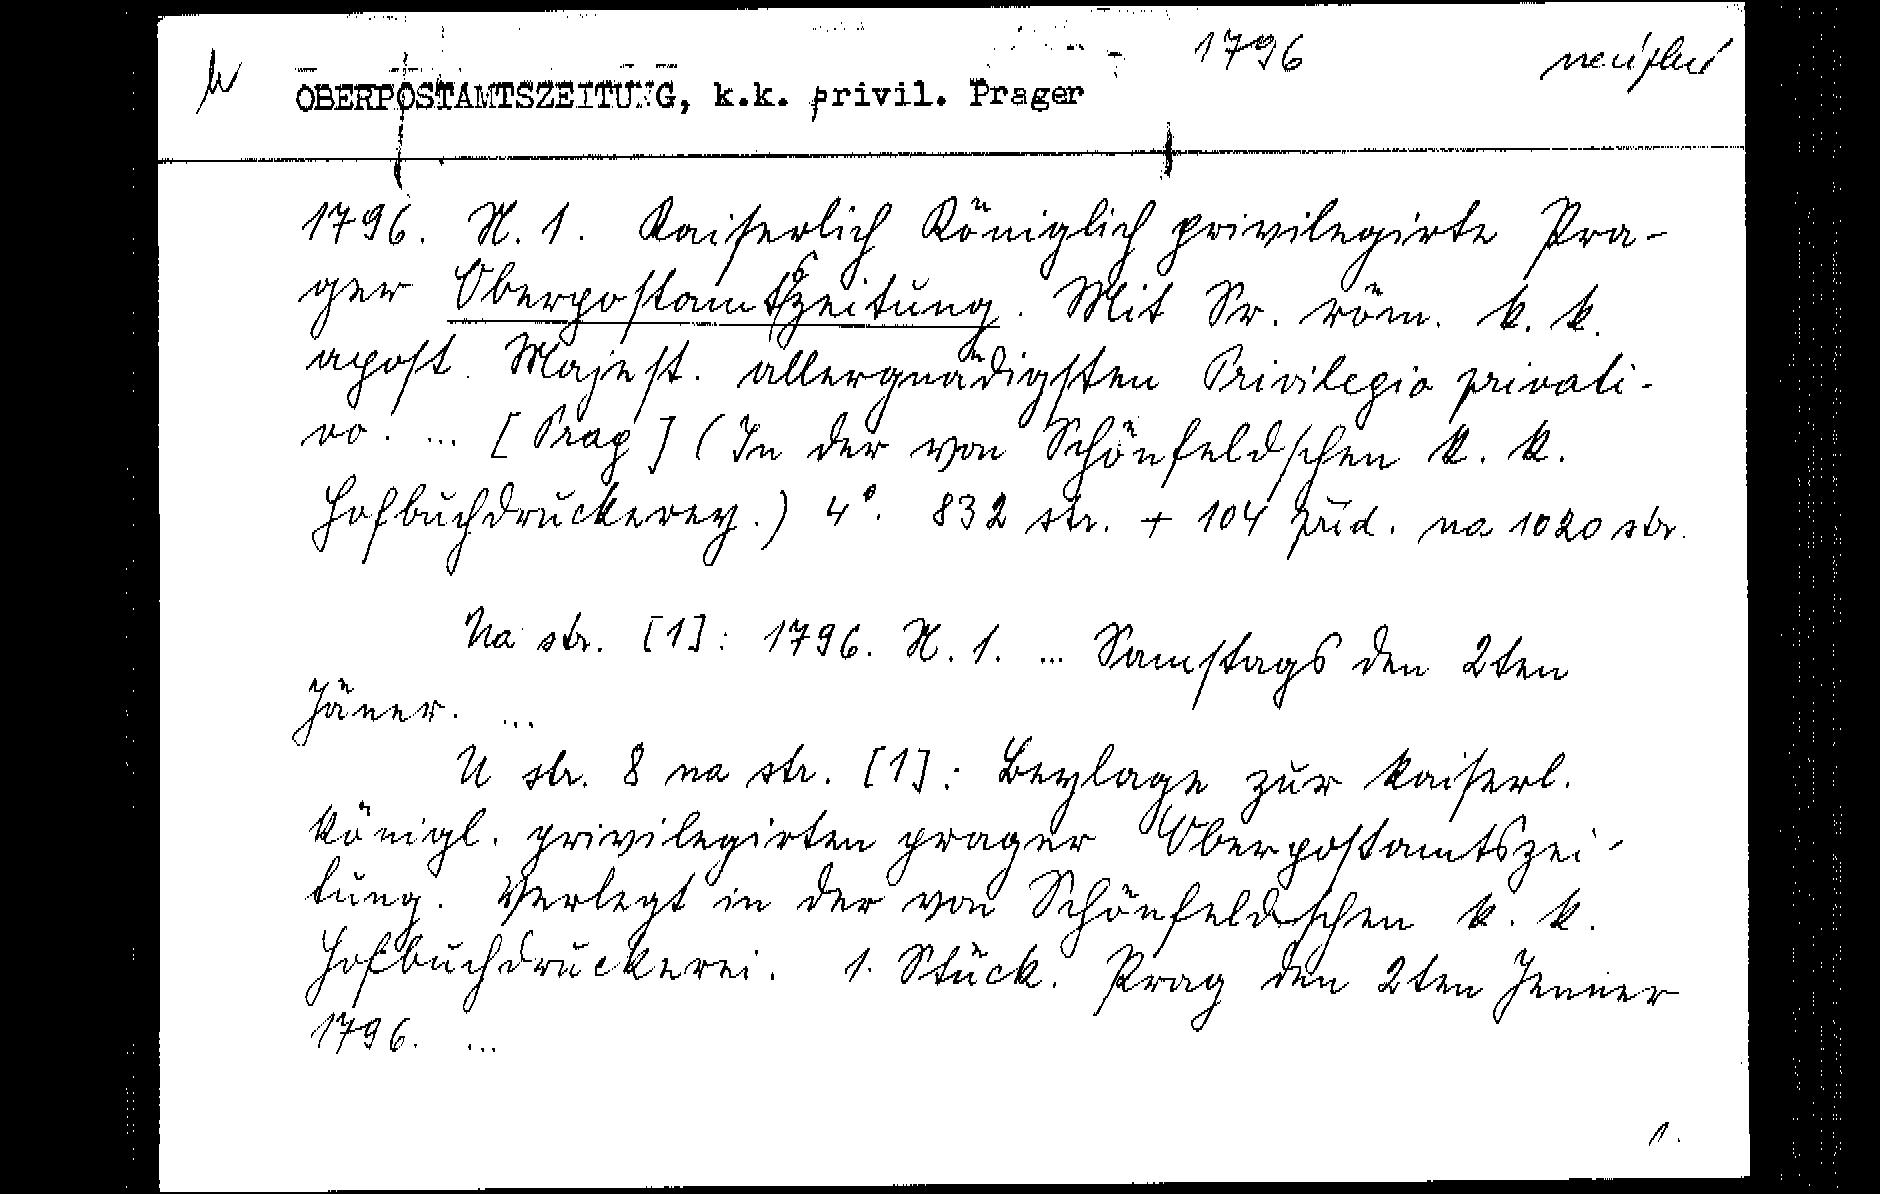 1796 neúplné
OBERPOSTAMTSZEITUNG, k.k. privil. Prager
1796. N. 1. Kaiserlich Königlich privilegirte Pra-
ger Oberpostamtszeitung. Mit Sr. röm. k. k.
apost. Majest. allergnädigsten Privilegio privati-
vo. ... [Prag] (In der von Schönfeldschen k. k.
Hofbuchdruckerey.) 4°. 832 str. + 104 příd. na 1020 str.
Na str. [1]: 1796. N. 1. ... Samstags den 2ten
Jäner. ...
U str. 8 na str. [1]: Beylage zur kaiserl.
königl. privilegirten prager Oberpostamtszei-
tung. Verlegt in der von Schönfeldschen k. k.
Hofbuchdruckerei. 1. Stück. Prag den 2ten Jenner
1796. ...
1.